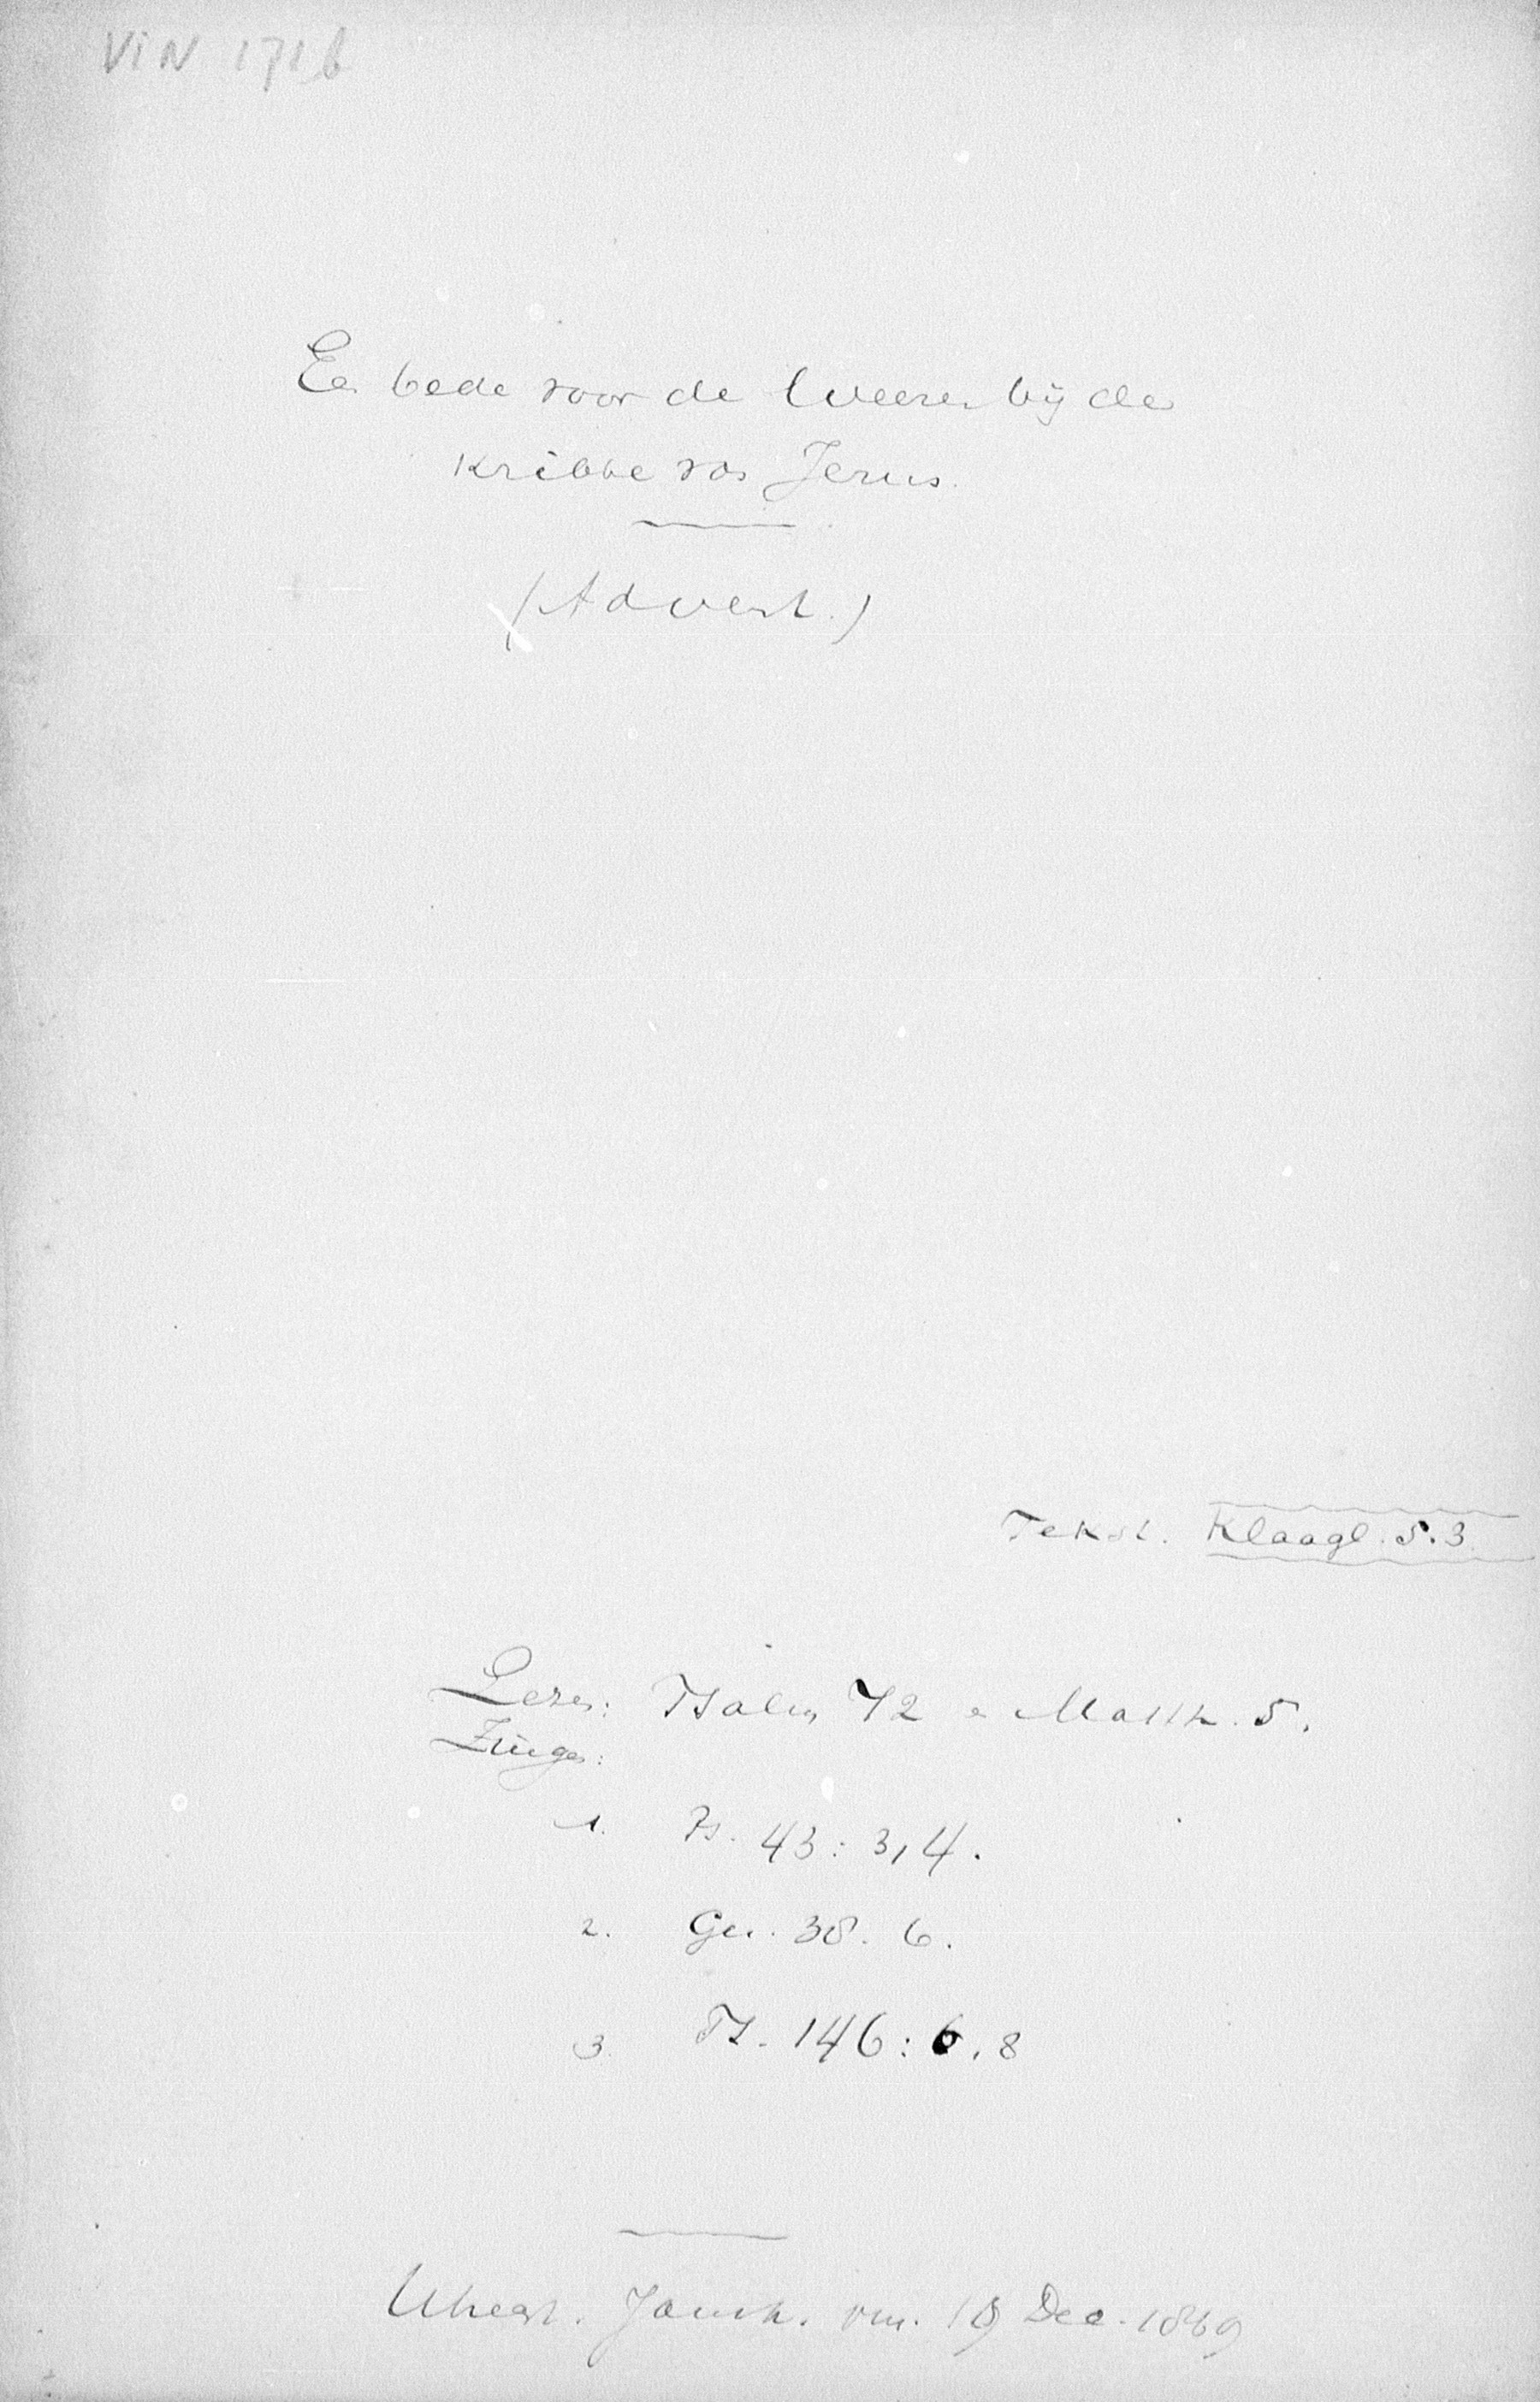 VIN 1716
Een bede voor de Weezen bij de
Kribbe van Jezus.
(Advent.)
Tekst. Klaagl. 5.3.
Lezen: Psalm 72 en Matth. 5.
Zingen:
1. Ps. 43: 3, 4.
2. Gez. 38. 6.
3. Ps. 146: 6, 8
Utrecht. Jansk. vm. 19 Dec. 1869